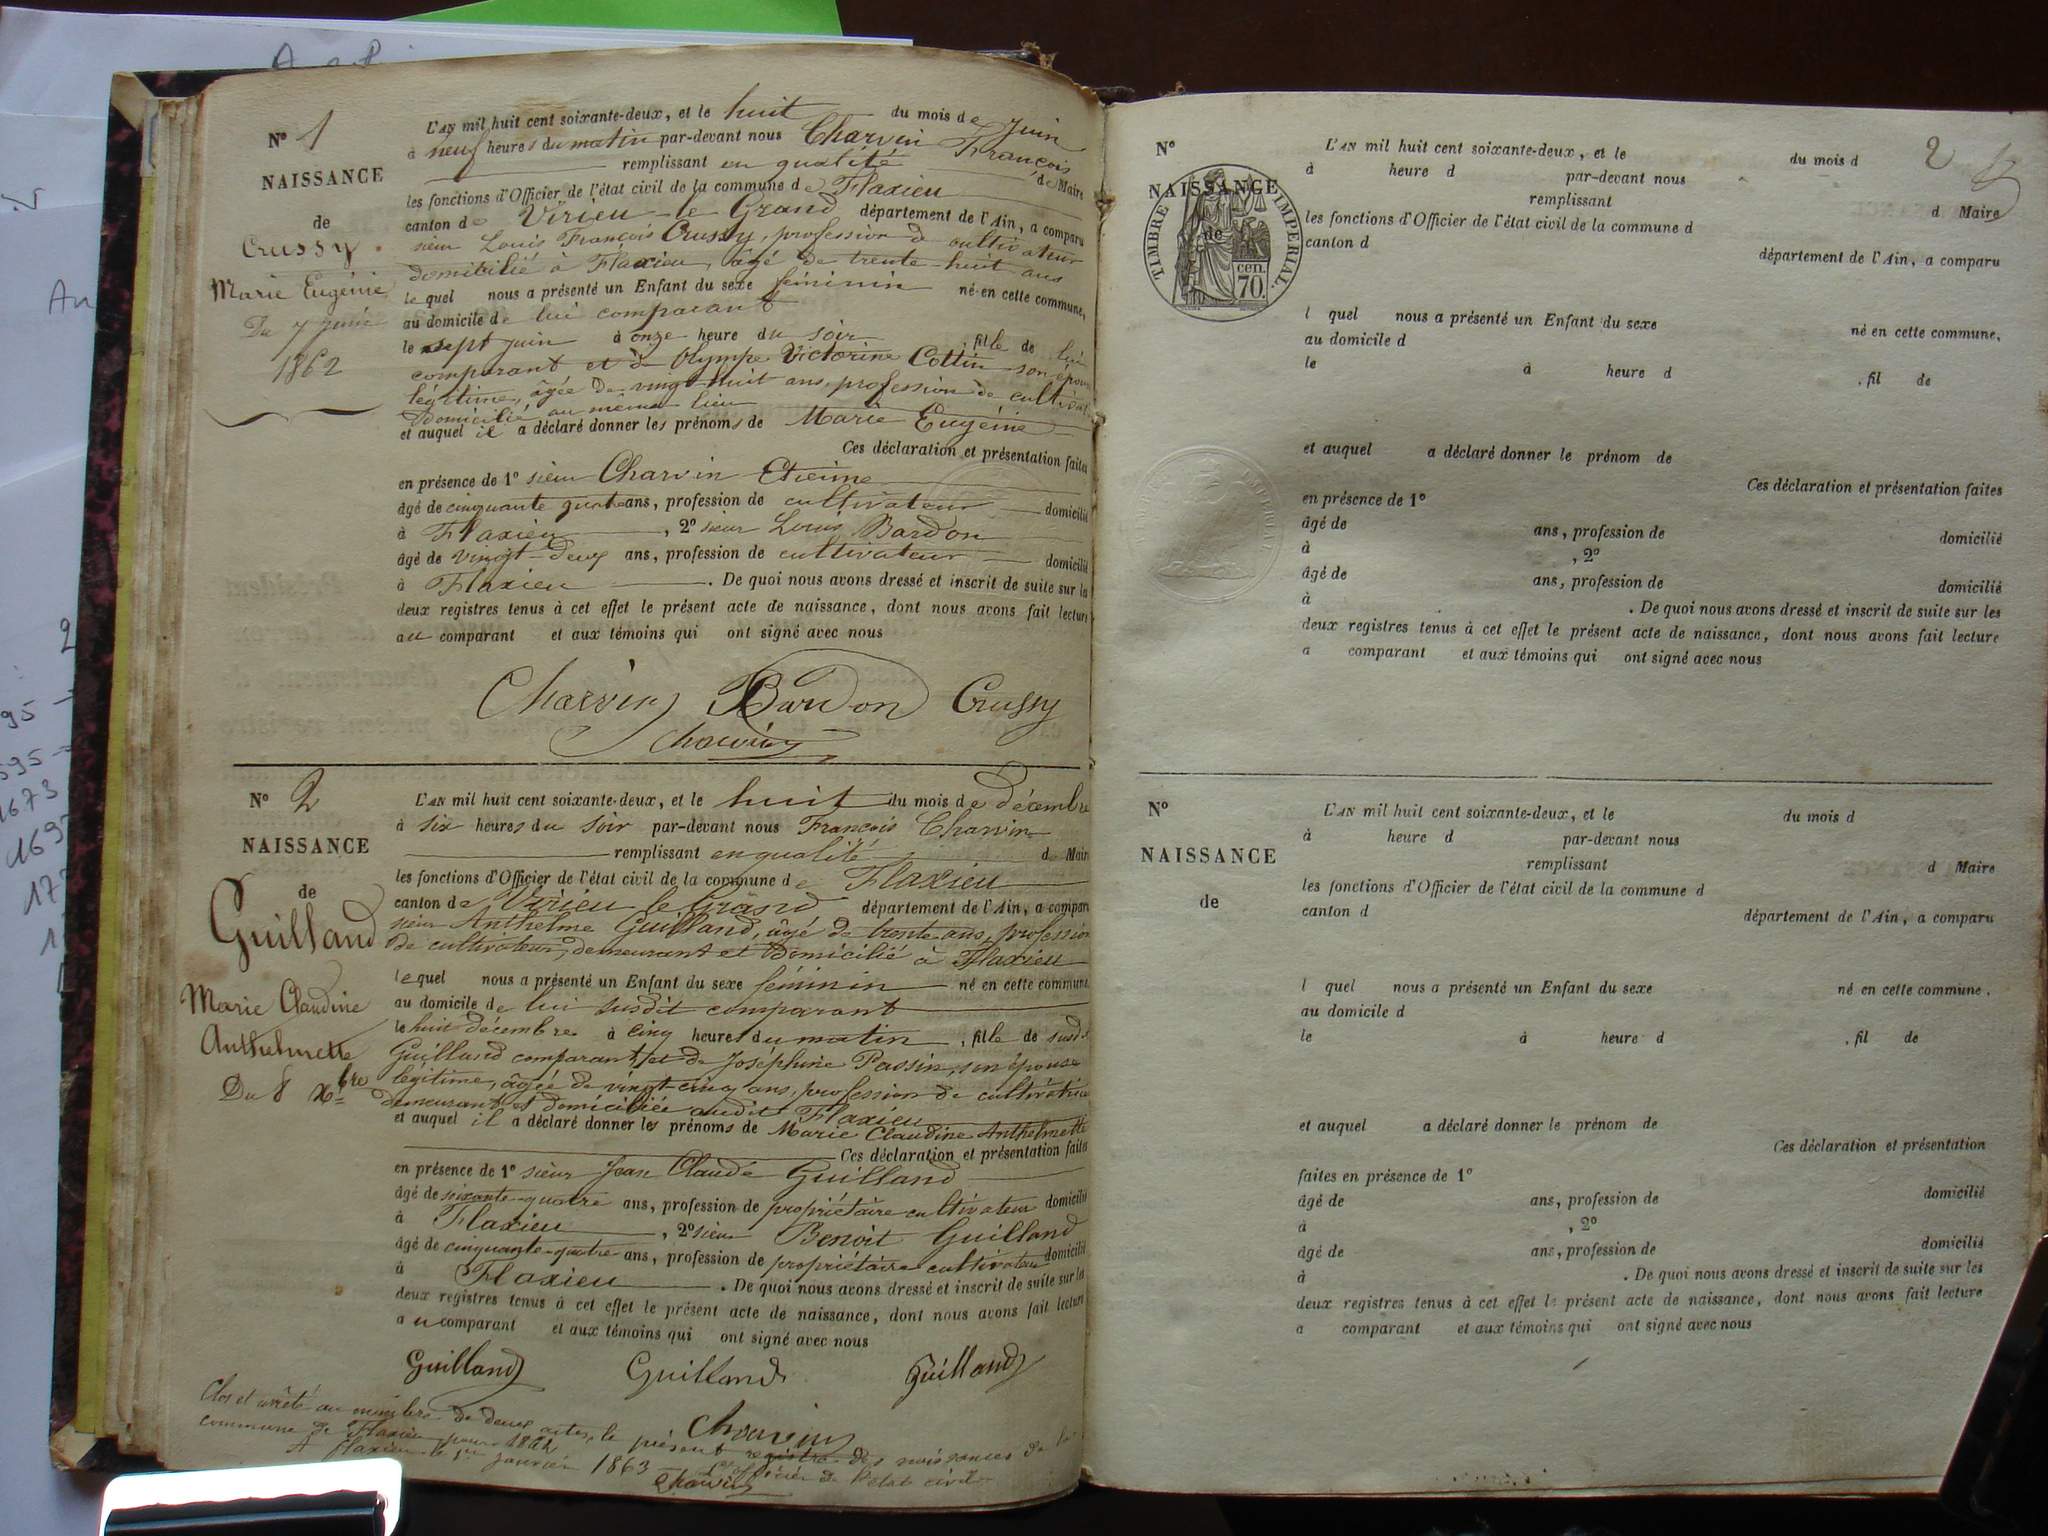 Nº 1
NAISSANCE
de
Crussy
Marie Eugénie
Du 7 juin
1862
L'AN mil huit cent soixante-deux, et le huit du mois de Juin
à neuf heures du matin par-devant nous Charvin François
remplissant en qualité de Maire
les fonctions d'Officier de l'état civil de la commune de Flaxieu
canton de Virieu-le-Grand département de l'Ain, a comparu
sieur Louis François Crussy, profession de cultivateur
domicilié à Flaxieu, âgé de trente-huit ans
lequel nous a présenté un Enfant du sexe féminin né en cette commune,
au domicile de lui comparant
le sept juin à onze heure du soir, fille de lui
comparant et de Olympe Victorine Cottin son épouse
légitime, âgée de vingt-huit ans, profession de
domicilié au même lieu
et auquel il a déclaré donner les prénoms de Marie Eugénie
Ces déclaration et présentation faites
en présence de 1º sieur Charvin Etienne
âgé de cinquante quatre ans, profession de cultivateur domicilié
à Flaxieu, 2º sieur Louis Bardon
âgé de vingt-deux ans, profession de cultivateur domicilié
à Flaxieu. De quoi nous avons dressé et inscrit de suite sur les
deux registres tenus à cet effet le présent acte de naissance, dont nous avons fait lecture
au comparant et aux témoins qui ont signé avec nous
Charvin Bardon Crussy
Charvin
Nº 2
NAISSANCE
de
Guilland
Marie Claudine
Anthelmette
Du 8 Xbre
L'AN mil huit cent soixante-deux, et le huit du mois de décembre
à six heures du soir par-devant nous François Charvin
remplissant en qualité de Maire
les fonctions d'Officier de l'état civil de la commune de Flaxieu
canton de Virieu le Grand département de l'Ain, a comparu
sieur Anthelme Guilland, âgé de trente ans, profession
de cultivateur, demeurant et domicilié à Flaxieu
lequel nous a présenté un Enfant du sexe féminin né en cette commune
au domicile de lui susdit comparant
le huit décembre à cinq heures du matin, fille de
Guilland comparant, et de Joséphine Passin, son épouse
légitime, âgée de vingt-cinq ans, profession de cultivatrice
demeurant et domiciliée audit Flaxieu
et auquel il a déclaré donner les prénoms de Marie Claudine Anthelmette
Ces déclaration et présentation faites
en présence de 1º sieur Jean Claude Guilland
âgé de soixante-quatre ans, profession de propriétaire cultivateur domicilié
à Flaxieu, 2º sieur Benoit Guilland
âgé de cinquante-quatre ans, profession de propriétaire cultivateur domicilié
à Flaxieu. De quoi nous avons dressé et inscrit de suite sur les
deux registres tenus à cet effet le présent acte de naissance, dont nous avons fait lecture
au comparant et aux témoins qui ont signé avec nous
Guilland Guilland Guilland
Charvin
Clos et arrêté au nombre de deux actes, le présent registre des naissances de la
commune de Flaxieu pour 1862
A Flaxieu le 1er janvier 1863 L'officier de l'état civil
Charvin
2
Nº
NAISSANCE
de
TIMBRE IMPERIAL
70 cen.
L'AN mil huit cent soixante-deux, et le du mois d
à heure d par-devant nous
remplissant d Maire
les fonctions d'Officier de l'état civil de la commune d
canton d département de l'Ain, a comparu
l quel nous a présenté un Enfant du sexe né en cette commune,
au domicile d
le à heure d , fil de
et auquel a déclaré donner le prénom de
Ces déclaration et présentation faites
en présence de 1º
âgé de ans, profession de domicilié
à , 2º
âgé de ans, profession de domicilié
à . De quoi nous avons dressé et inscrit de suite sur les
deux registres tenus à cet effet le présent acte de naissance, dont nous avons fait lecture
a comparant et aux témoins qui ont signé avec nous
Nº
NAISSANCE
de
L'AN mil huit cent soixante-deux, et le du mois d
à heure d par-devant nous
remplissant d Maire
les fonctions d'Officier de l'état civil de la commune d
canton d département de l'Ain, a comparu
l quel nous a présenté un Enfant du sexe né en cette commune.
au domicile d
le à heure d , fil de
et auquel a déclaré donner le prénom de
Ces déclaration et présentation
faites en présence de 1º
âgé de ans, profession de domicilié
à , 2º
âgé de ans, profession de domicilié
à . De quoi nous avons dressé et inscrit de suite sur les
deux registres tenus à cet effet le présent acte de naissance, dont nous avons fait lecture
a comparant et aux témoins qui ont signé avec nous